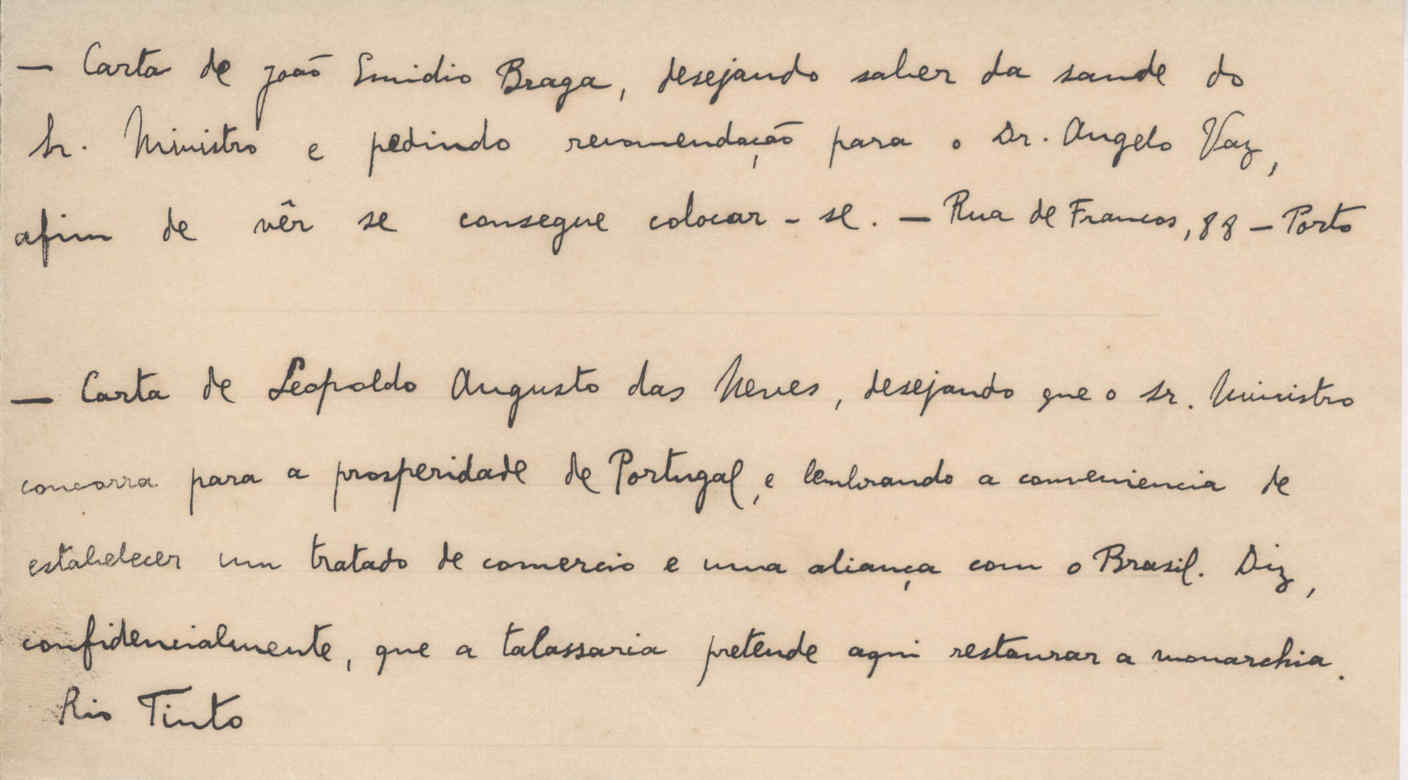 — Carta de João Emidio Braga, desejando saber da saude do
Sr. Ministro e pedindo recomendação para o Dr. Angelo Vaz,
afim de vêr se consegue colocar-se. — Rua de Francos, 88 — Porto
— Carta de Leopoldo Augusto das Neves, desejando que o Sr. Ministro
concorra para a prosperidade de Portugal, e lembrando a conveniencia de
estabelecer um tratado de comercio e uma aliança com o Brasil. Diz,
confidencialmente, que a talassaria pretende aqui restaurar a monarchia.
Rio Tinto